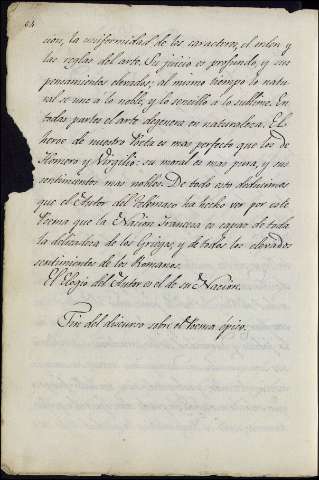 64
cion, la uniformidad de los caracteres, el orden y
las reglas del arte. Su juicio es profundo, y sus
pensamientos elevados; al mismo tiempo lo natu-
ral se une a lo noble, y lo sencillo a lo sublime. En
todas partes el arte degenera en naturaleza. El
heroe de nuestro Poeta es mas perfecto que los de
Homero y Virgilio: su moral es mas pura, y sus
sentimientos mas nobles. De todo esto deducimos
que el Autor del Telemaco ha hecho ver por este
Poema que la Nacion Francesa es capaz de toda
la delicadeza de los Griegos, y de todos los elevados
sentimientos de los Romanos.
El Elogio del Autor es el de su Nacion.
Fin del discurso sobre el Poema épico.